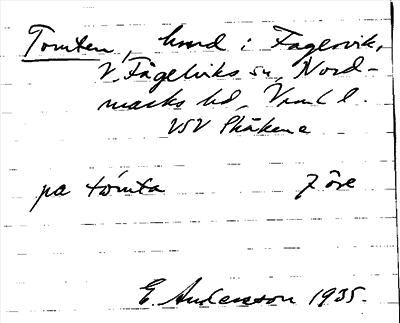 Tomten, hmd i Fagervik,
V. Fågelviks sn, Nord-
marks hd, Vrml l.
VSV Skåkene
pa tòmta 7 öre
E. Andersson 1935.